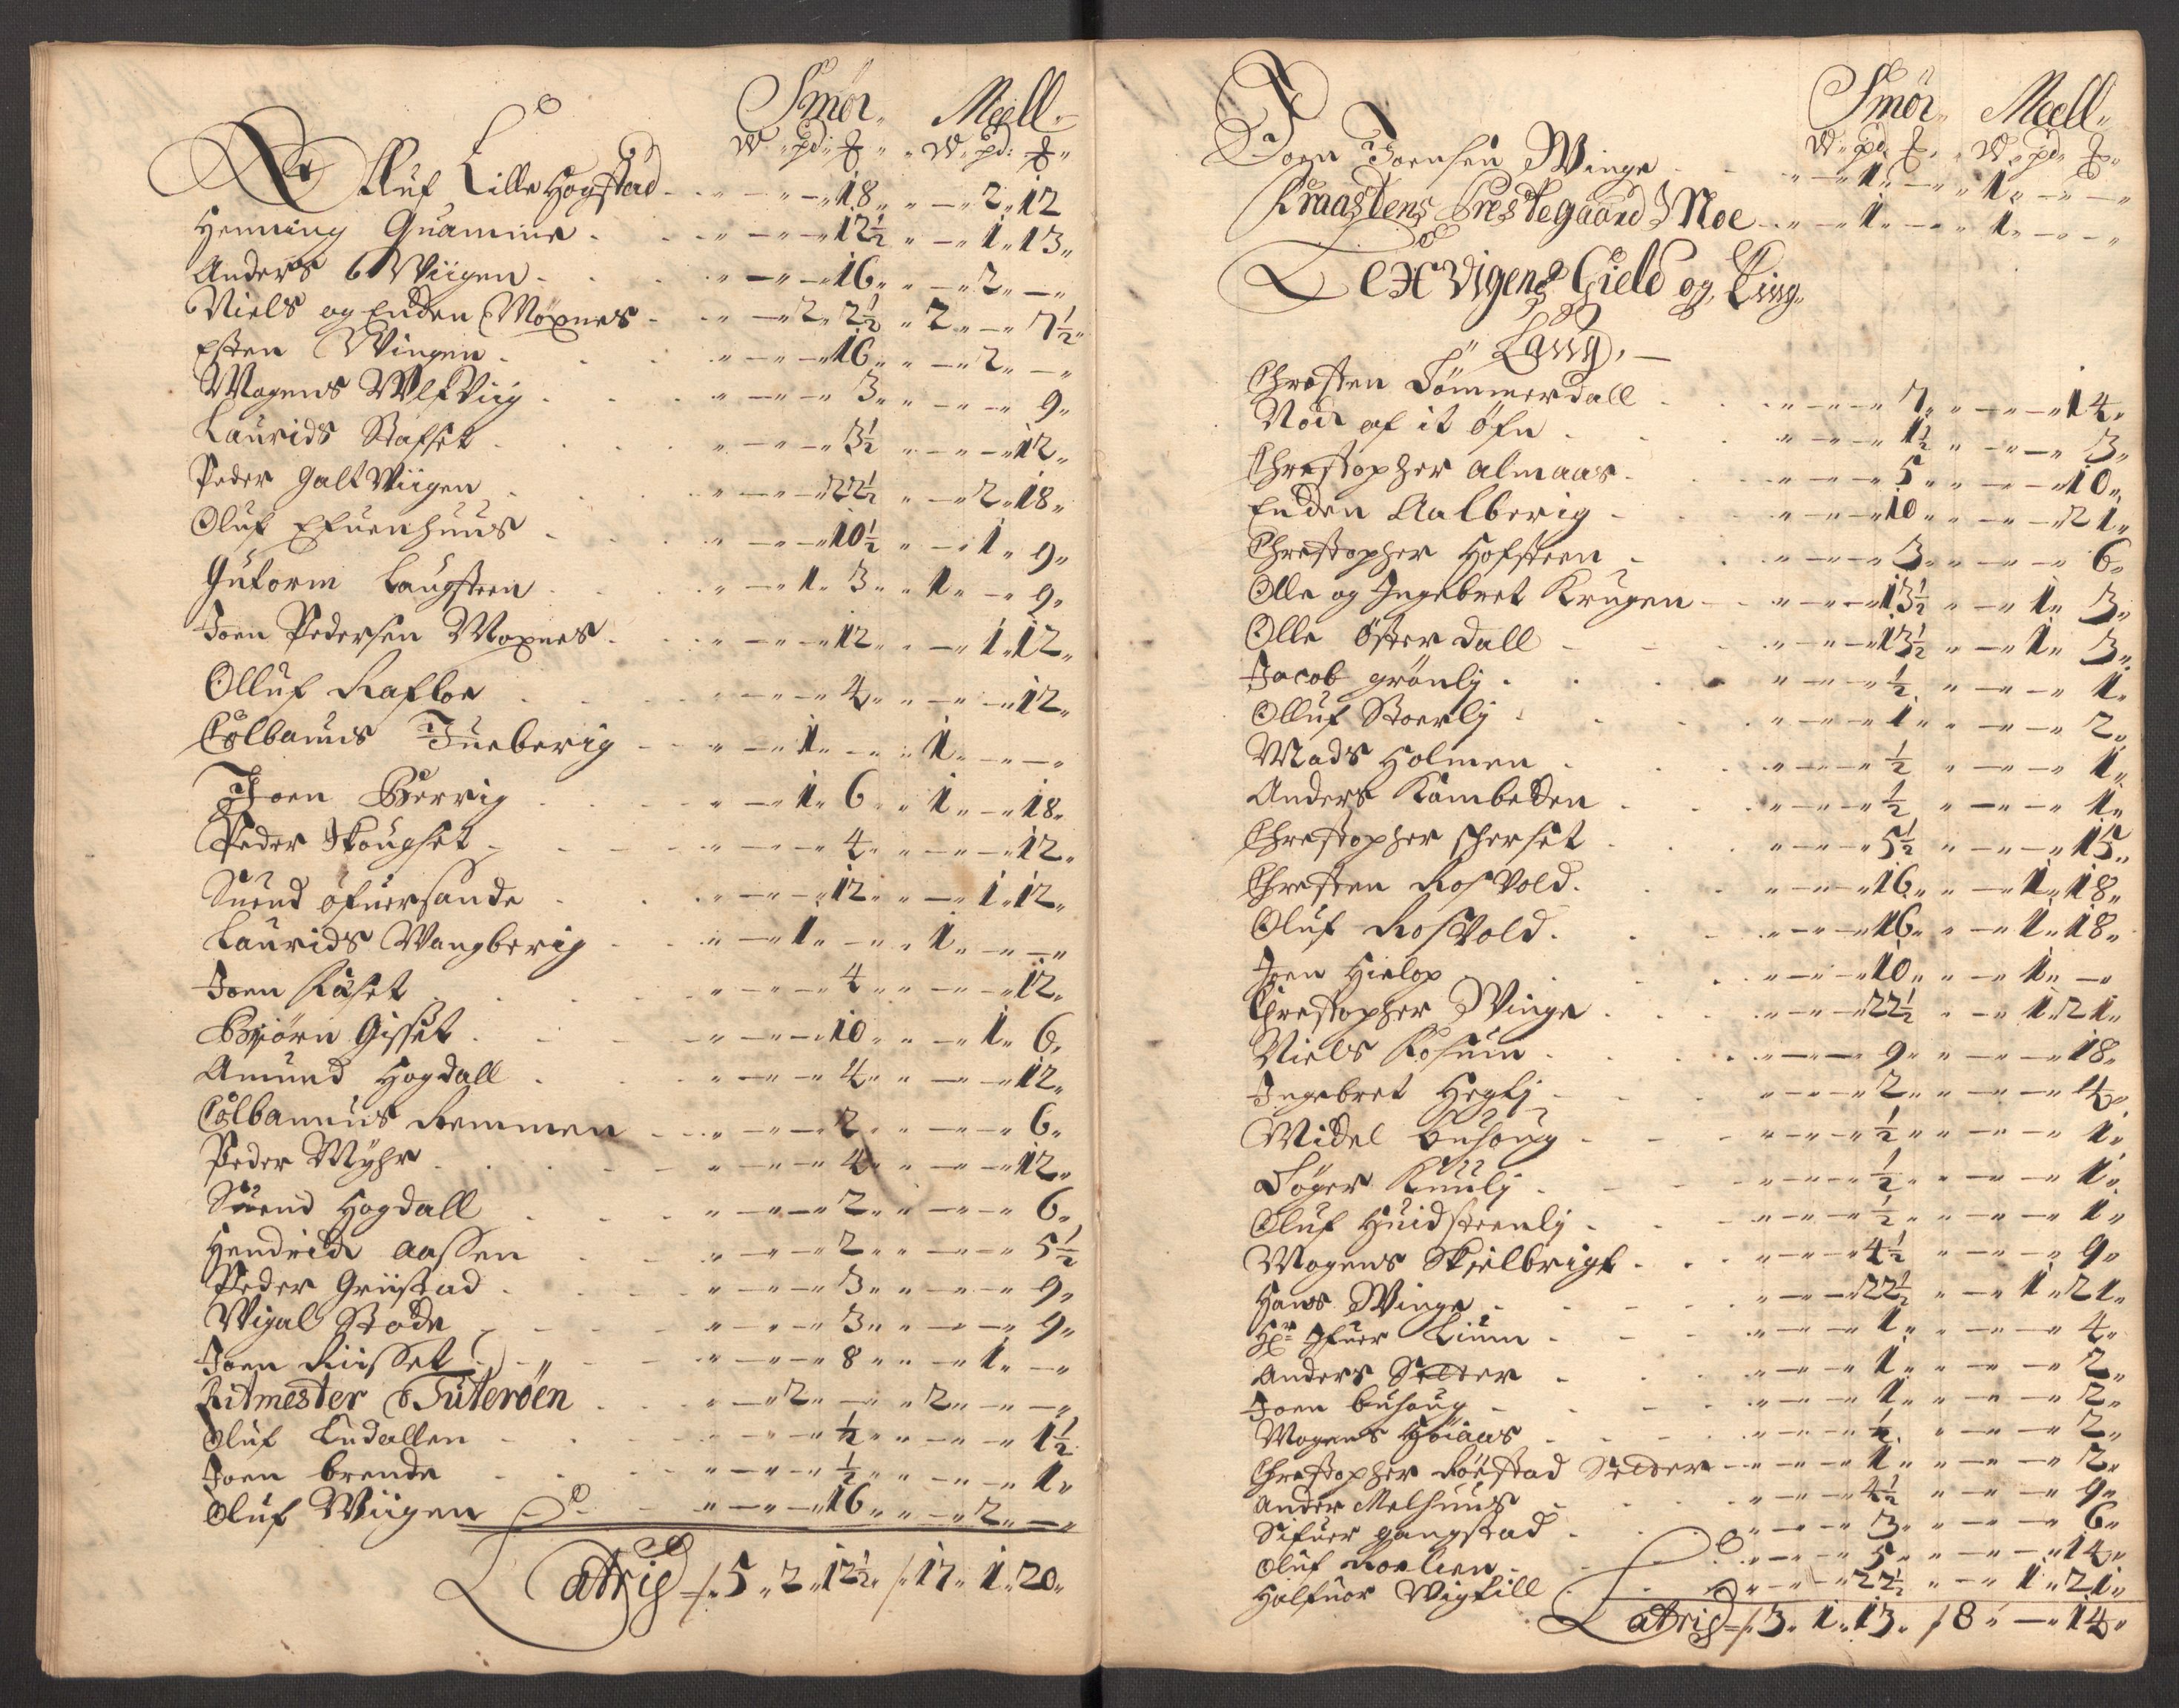 Smör, Meell,
W, pd: ℔, W, pd: ℔,
Olluf Lille Hogstad - 18, - 2, 12
Henning Quamme - 12½, - 1, 13,
Anders Wiigen - 16, - 2, -
Niels og Enden Moxnes - 2, 2½, 2, - 7½,
Esten Wingen - 16, - 2, -
Mogens Ulfviig - 3, - 9,
Laurids Stafset - 3½, - 12,
Peder Galt Wiigen - 22½, - 2, 18,
Oluf Efuenhuus - 10½, - 1, 9,
Gutorm Laugsteen - 1, 3, 1, - 9,
Joen Pedersen Moxnes - 12, - 1, 12,
Olluf Rafloe - 4, - 12,
Colbanus Tueberig - 1, - 1, -
Joen Berrig - 1, 6, 1, - 18,
Peder Skougset - 4, - 12,
Suend öfuersande - 12, - 1, 12,
Laurids Wangberig - 1, - 1, -
Joen Raset - 4, - 12,
Biörn Gisset - 10, - 1, 6,
Amund Hogdall - 4, - 12,
Colbannus Remmen - 2, - 6,
Peder Myhr - 4, - 12,
Suend Hogdall - 2, - 6,
Hendrich Aassen - 2, - 5½
Peder Griistad - 3, - 9,
Wigal Stode - 3, - 9,
Joen Riisset - 8, - 1, -
Ritmester Tuterøen - 2, - 2, -
Oluf Ludallen - ½, - 1½
Joen brende - ½, - 1,
Oluf Wiigen - 16, - 2, -
Latris /: 5, 2, 12½, /: 17, 1, 20,
Smör, Meell,
W, pd, ℔, W, pd, ℔,
Joen Joensen Winge - 1, - 1, -
Kraastens Prestegaard Moe - 1, - 1, -
Lexvigens Gield og Ting
Laug,
Chresten Sömmerdall - 7, - 14,
Noch af it öfn - 1½, - 3,
Chrestopher Almaas - 5, - 10,
Enden Aalberig - 10, - 21,
Chrestopher Hofsteen - 3, - 6,
Olle og Ingebret Krugen - 13½, - 1, 3,
Olle Österdall - 13½, - 1, 3,
Jacob grönlj - ½, - 1,
Olluf Stoerlj - 1, - 2,
Mads Holmen - ½, - 1,
Anders Kambeden - ½, - 1,
Chrestopher Scherset - 5½, - 15,
Chresten Rosvold - 16, - 1, 18,
Oluf Rosvold - 16, - 1, 18,
Joen Hielop - 10, - 1, -
Chrestopher Winge - 22½, - 1, 21,
Niels Kosum - 9, - 18,
Ingebret Heglj - 2, - 4,
Michel buhoug - ½, - 1,
Töger Kuulj - ½, - 1,
Oluf Huidsteenlj - ½, - 1,
Mogens Skielbrigt - 4½, - 9,
Hans Winge - 22½, - 1, 21,
Hr Ifuer Lium - 1, - 4,
Anders Setter - 1, - 2,
Joen buhoug - 1, - 2,
Mogens Höiaas - ½, - 2,
Chrestopher Röestad Setter - 1, - 2,
Ander Melhuus - 4½, - 9,
Sifuer gangstad - 3, - 6,
Oluf Roelien - 5, - 14,
Halfuor Wigtill - 22½, - 1, 21,
Latris /: 3, 1, 13, /8, - 14,